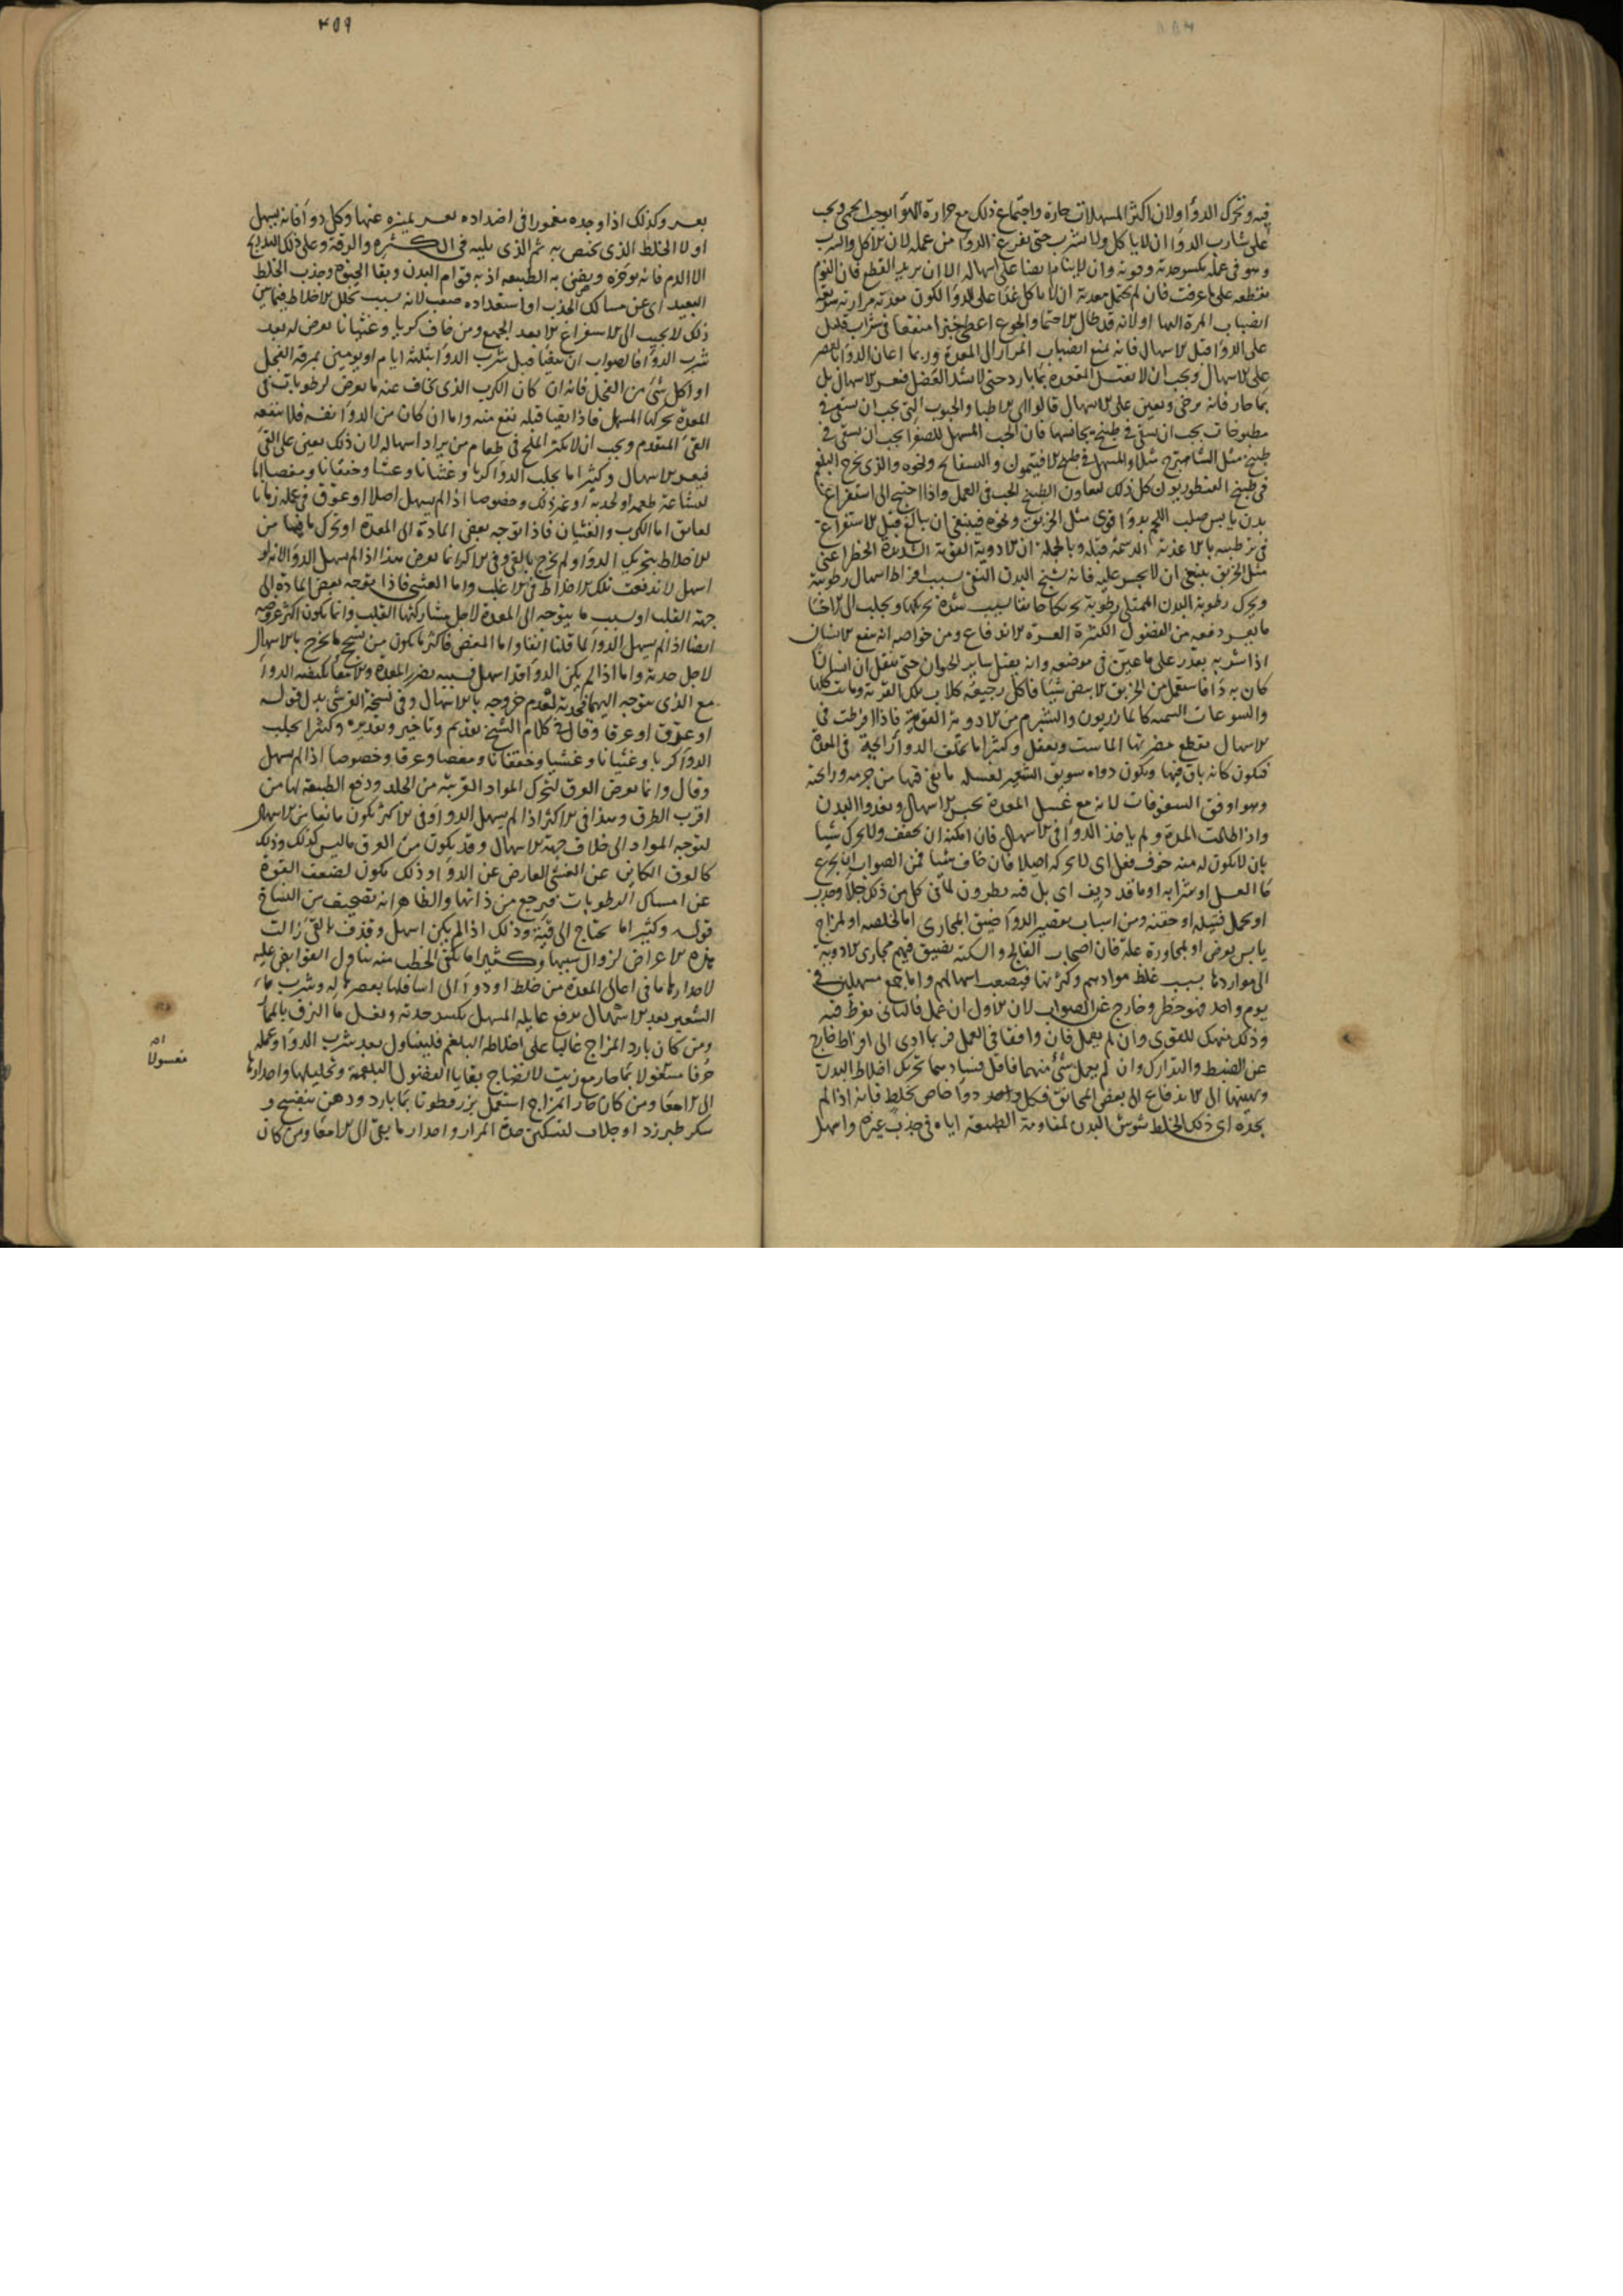 فيه وتحرك الدواء ولان اكثر المسهلات حارة واجتماع ذلك مع حرارة الهواء يوجب الحمى ويجب
على شارب الدواء ان لا ياكل ولا يشرب حتى يفرغ الدواء من عمله لان الاكل والشرب
وهو في عمله يكسر حدته وقوته وان لا ينام ايضا على اسهاله الا ان يريد القطع فان النوم
يقطعه على ما عرفت فان لم يحتمل معدته ان لا ياكل غذا على الدواء لكون معدته مرارية سريعة
انصباب المرة اليها او لانه قد طال الاحتما والجوع اعطي خبزا منقعا في شراب قليل
على الدواء قبل الاسهال فانه يمنع انصباب المرار الى المعدة وربما اعان الدواء بالعصر
على الاسهال ويجب ان لا يغسل المقعدة بماء بارد حتى لا يشد العضل فيعسر الاسهال بل
بماء حار فانه يرخي ويعين على الاسهال قالوا اي الاطبا والحبوب التي يجب ان يسقى في
مطبوخات يجب ان يسقى في طبيخ يجانسها فان الحب المسهل للصفراء يجب ان يسقى في
طبيخ مثل الشاهترج مثلا والمسهل في طبيخ الافيثمون والبسفايج ونحوه والذي يخرج البلغم
في طبيخ القنطوريون كل ذلك ليعاون الطبيخ الحب في العمل واذا احتيج الى استفراغ
بدن يابس صلب اللحم بدواء قوي مثل الخربق ونحوه فينبغي ان يبالغ قبل الاستفراغ
في ترطيبه بالاغذية الدسمة قبله وبالجملة ان الادوية القوية الشديدة الخطر اعني
مثل الخربق ينبغي ان لا يجسر عليه فانه يشنج البدن النقي بسبب افراط اسهال رطوبته
ويحرك رطوبة البدن الممتلي رطوبة تحريكا خانقا بسبب شدة تحريكها ويجلب الى الاحشا
ما يعسر دفعه من الفضول الكثيرة العسرة الاندفاع ومن خواصه انه يمنع الانسان
كان به دا فاستعمل من الخربق الابيض شيئا فاكل رجيعه كلاب تلك القرية وماتت كلها
واليتوعات السمية كالمازريون والشبرم من الادوية القوية فاذا افرطت في
الاسهال يقطع مضرتها الماست ويعقل وكثيرا ما يخلف الدواء رايحة في المعدة
فتكون كانه باق فيها ويكون دواه سويق الشعير لغسله ما بقي فيها من جرمه ورايحته
وهو اوفق السفوفات لانه مع غسل المعدة يحبس الاسهال ويغذوا البدن
واذا طالت المدة ولم ياخذ الدواء في الاسهال فان امكنه ان يخفف ولا يحرك شيا
بان لا يكون له منه خوف فعل اي لا يحركه اصلا فان خاف شيئا فمن الصواب ان يجرع
ما العسل او شرابه او ما قد ديف اي بل فيه نطرون
او يحمل فتيلة او حقنة ومن اسباب تقصير الدواء ضيق المجاري اما لخلقة او لمزاج
يابس يعرض او لمجاورة علة فان اصحاب الفالج والسكتة يضيق فيهم مجاري الادوية
الى مواردها بسبب غلظ موادهم وكثرتها فيصعب اسهالهم واما جمع مسهلين في
يوم واحد فهو خطر وخارج عن الصواب لان الاول ان عمل فالثاني يفرط فيه
وذلك منهك للقوى وان لم يعمل فان وافقا في العمل فربما ادى الى افراط خارج
عن الضبط والتدارك وان لم يعمل شئ منهما فاقل فسادهما تحريك اخلاط البدن
وتهييتها الى الاندفاع الى بعض المخانق فكل واحد دواء خاص بخلط فانه اذا لم
يجده اي ذلك الخلط شوش البدن لمقاومة الطبيعة اياه في جذب غيره واسهل
٤٥٩
بعسر وكذلك اذا وجده مغمورا في اضداده بعسر يميزه عنها وكل دواء فانه يسهل
اولا الخلط الذي يختص به ثم الذي يليه في الكثرة والرقة وعلى ذلك التدريج
الا الدم فانه يؤخره ويضن به الطبيعة اذ به قوام البدن وبقا الحيوة وجذب الخلط
البعيد اي عن مسالك الجذب او استعداده صعب لانه بسبب تخلل الاخلاط فيما بين
ذلك لا يجيب الى الاستفراغ الا بعد الجميع ومن خاف كربا وغثيانا يعرض له بعد
شرب الدواء فالصواب ان يتقيا قبل شرب الدواء بثلثة ايام او يومين بمرقة الفجل
او اكل شئ من الفجل فانه ان كان الكرب الذي يخاف عنه ما يعرض لرطوبات في
المعدة يحركها المسهل فاذا تقيا قبله نفع منه واما ان كان من الدواء نفسه فلا ينفعه
القئ المتقدم ويجب ان لا يكثر الملح في طعام من يراد اسهاله لان ذلك يعين على القئ
فيعسر الاسهال وكثيرا ما يجلب الدواء كربا وغثيانا وغشيا وخفقانا ومغصا اما
لبشاعة طعمه او لحدته او غير ذلك وخصوصا اذا لم يسهل اصلا او عوق في عمله زمانا
لعايق اما الكرب والغثيان فاذا توجه بعض المادة الى المعدة او تحرك ما فيها من
الاخلاط بتحريك الدواء ولم يخرج بالقئ وفي الاكثر انما يعرض هذا اذا لم يسهل الدواء لانه لو
اسهل لاندفعت تلك الاخلاط في الاغلب واما الغشي فاذا توجه بعض المادة الى
جهة القلب او بسبب ما يتوجه الى المعدة لاجل مشاركتها القلب وانما يكون اكثر عروضه
ايضا اذا لم يسهل الدواء لما قلنا انفا واما المغص فاكثر ما يكون من سحج ما يخرج بالاسهال
لاجل حدته واما اذا لم يكن الدواء قد اسهل
مع الذي يتوجه اليها لعدم خروجه بالاسهال وفي نسخة القرشي بدل قوله
او عوق او عرقا وقال في كلام الشيخ تقديم وتاخير وتقديره وكثيرا يجلب
الدواء كربا وغثيانا وغشيا وخفقانا ومغصا وعرقا وخصوصا اذا لم يسهل
وقال وانما يعرض العرق لتحرك المواد القريبة من الجلد ودفع الطبيعة لها من
اقرب الطرق وهذا في الاكثر اذا لم يسهل الدواء وفي الاكثر يكون مانعا من الاسهال
لتوجه المواد الى خلاف جهة الاسهال وقد يكون من العرق ما ليس كذلك وذلك
كالعرق الكاين عن الغشي العارض عن الدواء وذلك يكون لضعف القوة
عن امساك الرطوبات فيرجع من ذاتها والظاهر انه تصحيف من النساخ
قوله وكثيرا ما يحتاج الى قيئة وذلك اذا لم يكن اسهل وقذف بالقئ زالت
هذه الاعراض لزوال سببها وكثيرا ما يكفي الخطب منه تناول القوابض عليه
لاحدارها ما في اعالي المعدة من خلط او دواء الى اسافلها بعصرها له وشرب ماء
الشعير بعد الاسهال يدفع غايلة المسهل بكسر حدته وغسل ما التزق بالمعا
ومن كان بارد المزاج غالبا على اخلاطه البلغم فليتناول بعد شرب الدواء وعمله
حرفا مغسولا بماء حار مع زيت لانضاج بقايا الفضول البلغمية وتحليلها واحدارها
الى الامعا ومن كان حار المزاج استعمل بزرقطونا بماء بارد ودهن بنفسج و
سكر طبرزد او جلاب لتسكين حدة المرار واحدار ما بقي الى الامعا ومن كان
مغسولا